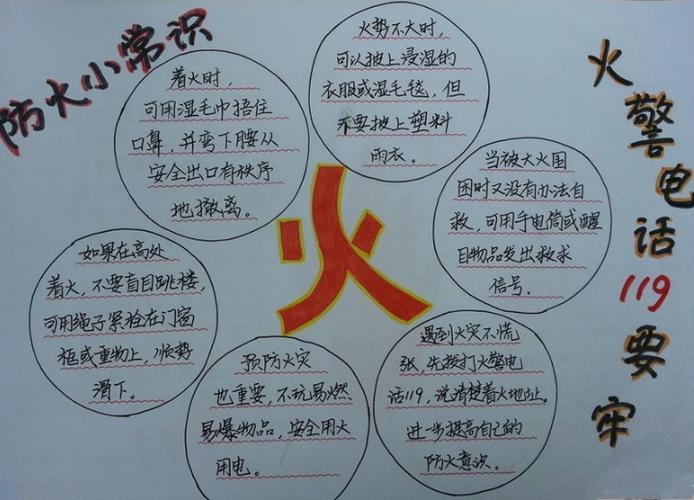 防火小常识
着火时，
可用湿毛巾捂住
口鼻，并弯下腰从
安全出口有秩序
地撤离。
火势不大时，
可以披上浸湿的
衣服或湿毛毯，但
不要披上塑料
雨衣。
当被大火围
困时又没有办法自
救，可用手电筒或醒
目物品发出救求
信号。
如果在高处
着火，不要盲目跳楼，
可用绳子紧拴在门窗
框或重物上，顺势
滑下。
火
预防火灾
也重要，不玩易燃
易爆物品，安全用火
用电。
遇到火灾不慌
张，先拨打火警电
话119，说清楚着火地址。
进一步提高自己的
防火意识。
火警电话119要牢